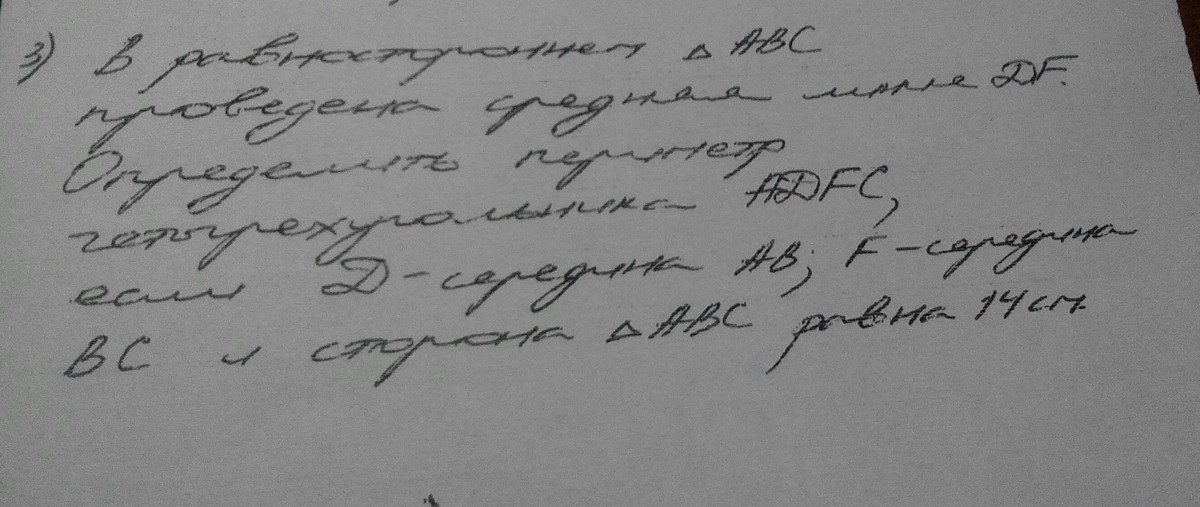 3) В равностороннем △ ABC
проведена средняя линия DF.
Определить периметр
четырехугольника ADFC,
если D - середина AB; F - середина
BC и сторона △ ABC равна 14 см.